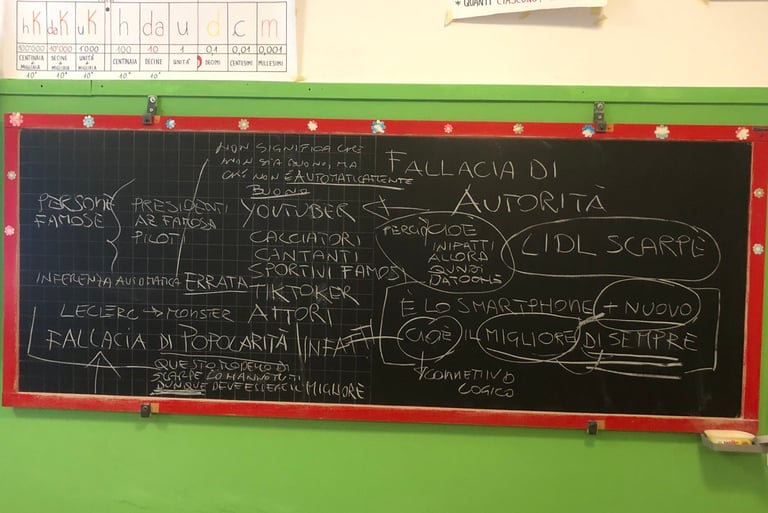 hK daK uK h da u d c m
100'000 10'000 1'000 100 10 1 0,1 0,01 0,001
CENTINAIA DI MIGLIAIA DECINE DI MIGLIAIA UNITÀ DI MIGLIAIA CENTINAIA DECINE UNITÀ DECIMI CENTESIMI MILLESIMI
* QUANTI CIASCUNO?
NON SIGNIFICA CHE
NON SIA BUONO, MA
CHE NON È AUTOMATICAMENTE
BUONO
FALLACIA DI
AUTORITÀ
PERSONE
FAMOSE
PRESIDENTI
AZ FAMOSA
PILOTI
YOUTUBER
CALCIATORI
CANTANTI
SPORTIVI FAMOSI
TIKTOKER
ATTORI
INFERENZA AUTOMATICA ERRATA
LECLERC → MONSTER
PERCIÒ CIOÈ
INFATTI
ALLORA
QUINDI
DATO CHE
LIDL SCARPE
È LO SMARTPHONE + NUOVO
CIOÈ IL MIGLIORE DI SEMPRE
CONNETTIVO
LOGICO
FALLACIA DI POPOLARITÀ INFATTI
QUESTO MODELLO DI
SCARPE LO HANNO TUTTI
DUNQUE DEVE ESSERE IL MIGLIORE